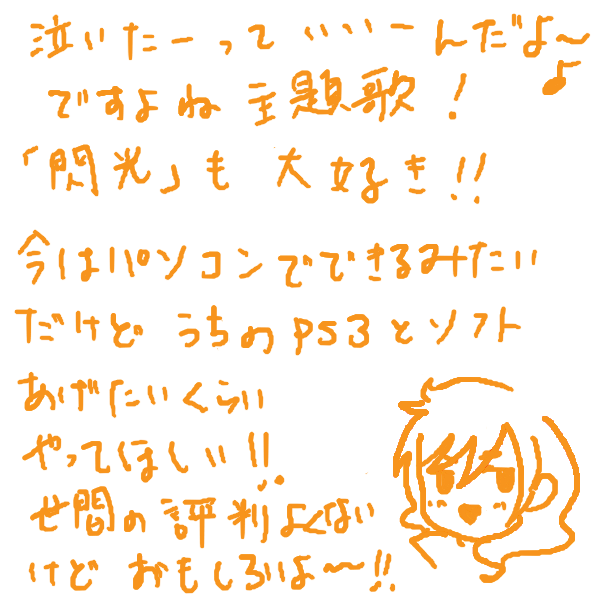 泣いたーっていいいーんだよ〜♪
ですよね 主題歌!
「閃光」も 大好き!!
今はパソコンでできるみたい
だけど うちのPS3とソフト
あげたいくらい
やってほしい!!
世間の評判よくない
けど おもしろいよ〜!!